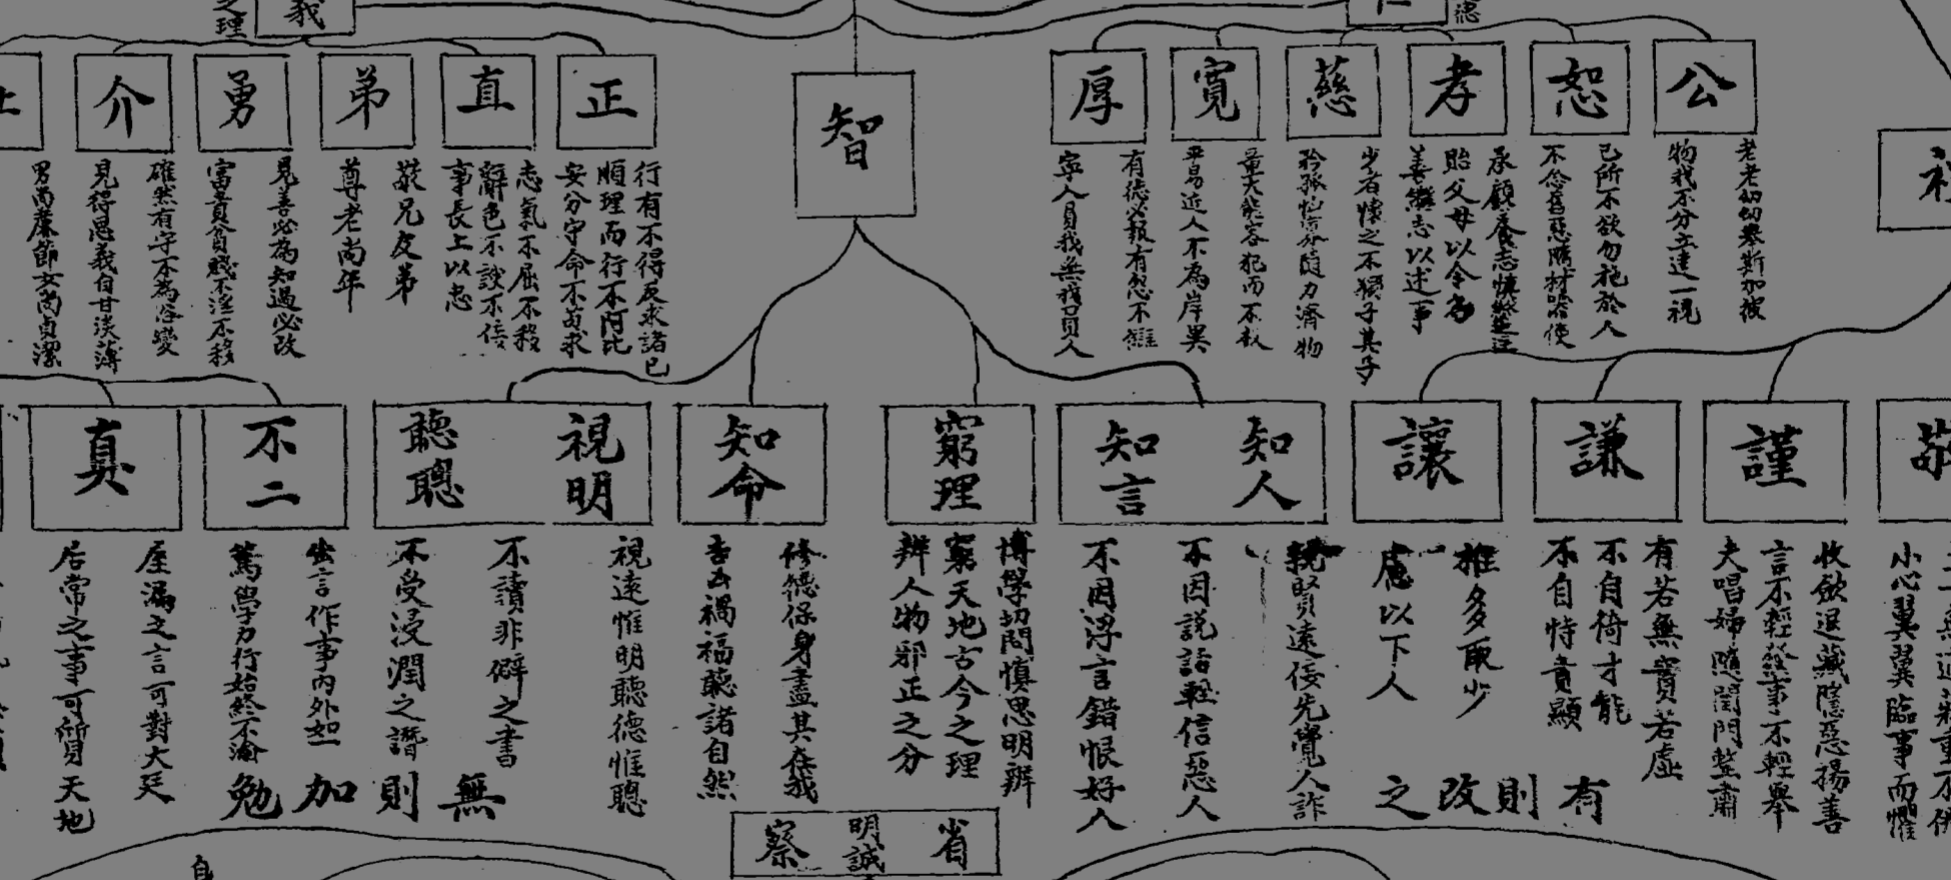 公
老老幼幼舉斯加彼
物我不分立達一視
恕
己所不欲勿施於人
不念舊惡隨材器使
孝
承顧養志慎終追遠
貽父母以令名
善繼志以述事
慈
少者懷之不獨子其子
矜孤恤窮隨力濟物
寬
量大能容犯而不校
平易近人不為岸異
厚
有德必報有怨不讎
寧人負我無我負人
義
之理
正
行有不得反求諸己
順理而行不阿比
安分守命不苟求
直
志氣不屈不移
辭色不諛不佞
事長上以忠
弟
敬兄友弟
尊老尚年
勇
見善必為知過必改
富貴貧賤不淫不移
介
確然有守不為俗變
見得思義自甘淡薄
男尚廉節女尚貞潔
智
小心翼翼臨事而懼
謹
收斂退藏隱惡揚善
言不輕發事不輕舉
夫唱婦隨閨門整肅
謙
有若無實若虛
不自倚才能
不自恃貴顯
讓
推多取少
慮以下人
知人
知言
親賢遠佞先覺人詐
不因說話輕信惡人
不因浮言錯恨好人
窮理
博學切問慎思明辨
窮天地古今之理
辨人物邪正之分
知命
修德保身盡其在我
吉凶禍福聽諸自然
視明
聽聰
視遠惟明聽德惟聰
不讀非僻之書
不受浸潤之譖
不二
出言作事內外如一
篤學力行始終不渝
真
屋漏之言可對大廷
居常之事可質天地
有則改之
無則加勉
省
明誠
察
自